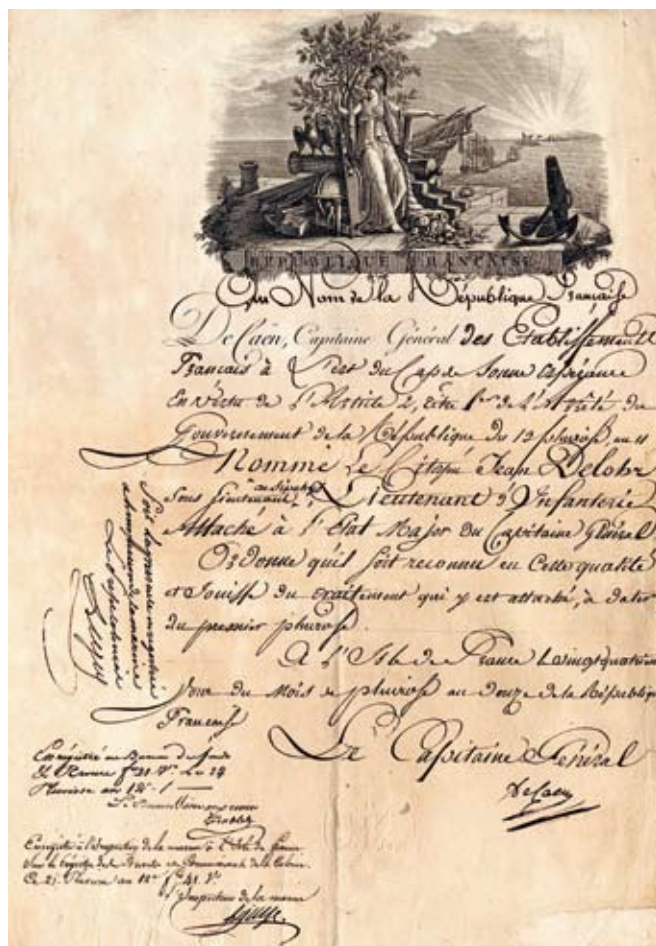 RÉPUBLIQUE FRANÇAISE
Au Nom de la République Française
De Caën, Capitaine Général des Etablissements
Français à L'Est du Cap de Bonne Espérance
En vertu de l'Article 2, titre 1er de L'Arrêté du
Gouvernement de la République du 12 pluviose, an 11
Nomme Le Citoyen Jean Delohr
Sous Lieutenant, Lieutenant d'Infanterie
Attaché à l'Etat Major du Capitaine Général
Ordonne qu'il soit reconnu en Cette qualité
et Jouisse du traitement qui y est attaché, à dater
du premier pluviose.
A l'Isle de France Le vingt quatrieme
Jour du Mois de pluviose an Douze de la République
Francaise
Le Capitaine Général
DeCaen
Soit la présente enregistrée
Le Préfet Colonial
Léger
Enregistré au Bureau des fonds
24
Pluviose an 12
Enregistré à l'Inspection de la marine à l'Isle de france
Sur le registre des Brevets et
Ce 25 Pluviose an 12 fo 41 Vo
L'Inspecteur de la marine